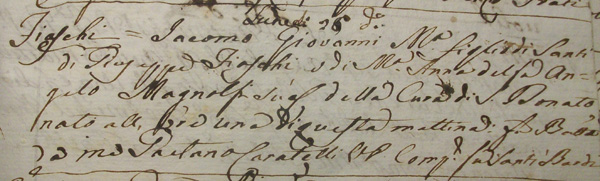 Lunedi 26 do.
Fiaschi = Iacomo Giovanni Ma. figlio di Santi
di Giuseppe Fiaschi, e di Ma. Anna del fu An-
gelo Magnolfi sua della Cura di S. Donato
nato alle ore una di questa mattina: fu Batta.
da me Gaetano Caratelli Comp. fu Santi Bardi